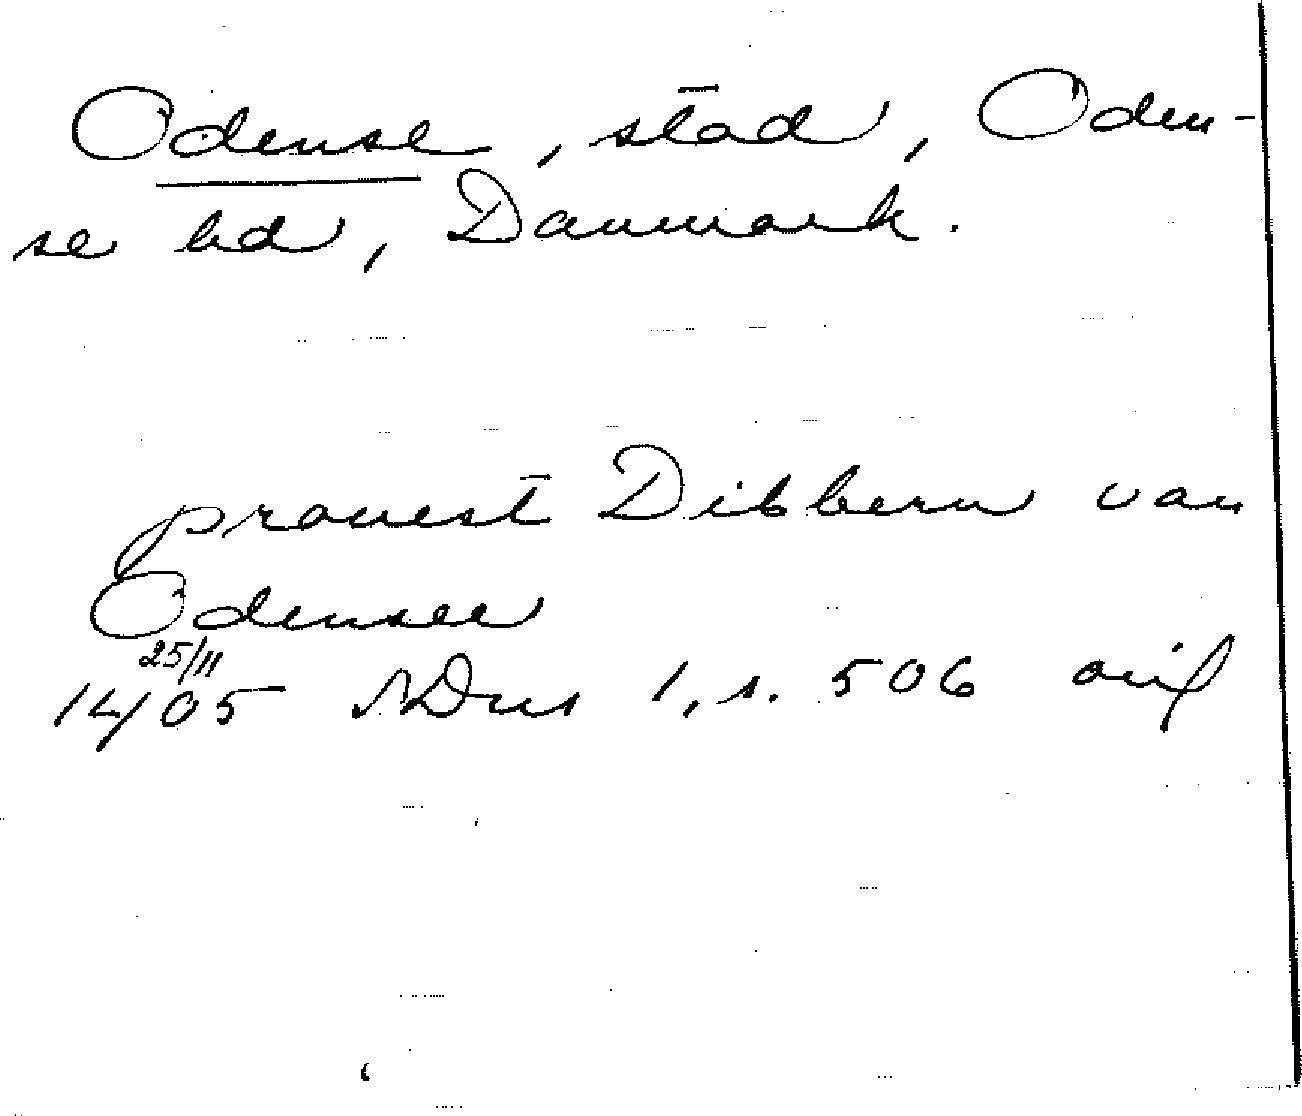 Odense, stad, Oden-
se hd, Danmark.
prouest Dibbern van
Odensee
25/11
1405 NDns 1, s. 506